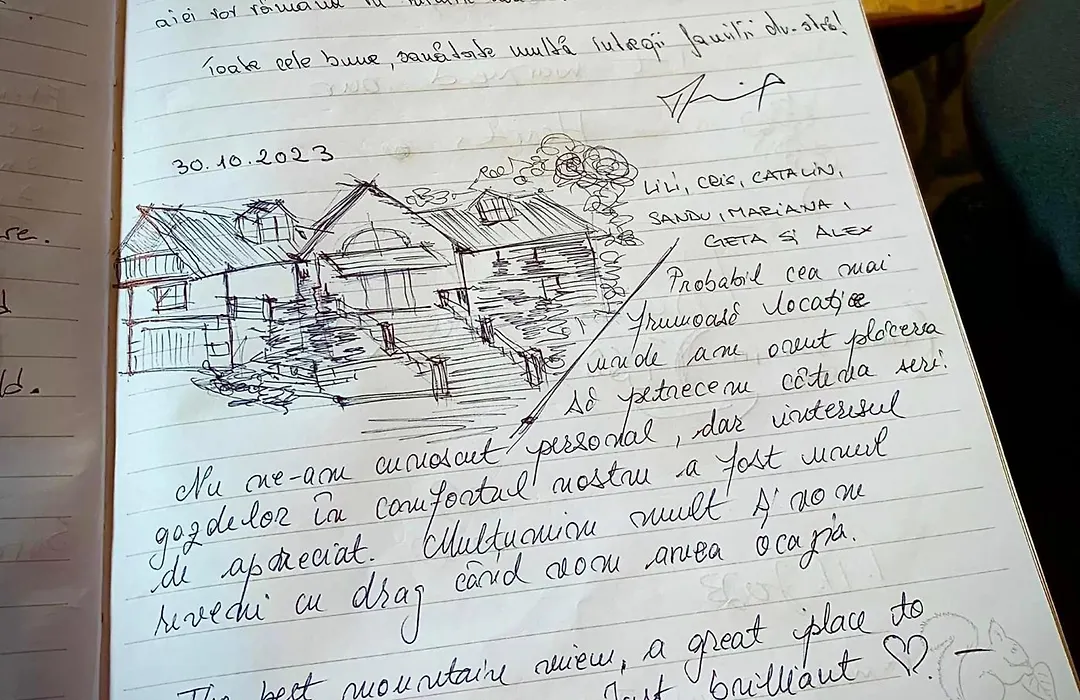 aiei vor rămâne în
Toate cele bune, sănătate multă întregii familii dv-stră!
30.10.2023
LILI, CRIS, CATALIN,
SANDU, MARIANA,
GETA ȘI ALEX
Probabil cea mai
frumoasă locație
unde am avut plăcerea
să petrecem câteva seri!
Nu ne-am cunoscut personal, dar interesul
gazdelor în confortul nostru a fost unul
de apreciat. Mulțumim mult și vom
reveni cu drag când vom avea ocazia.
The best mountain view, a great place to
Just brilliant
re.
d.